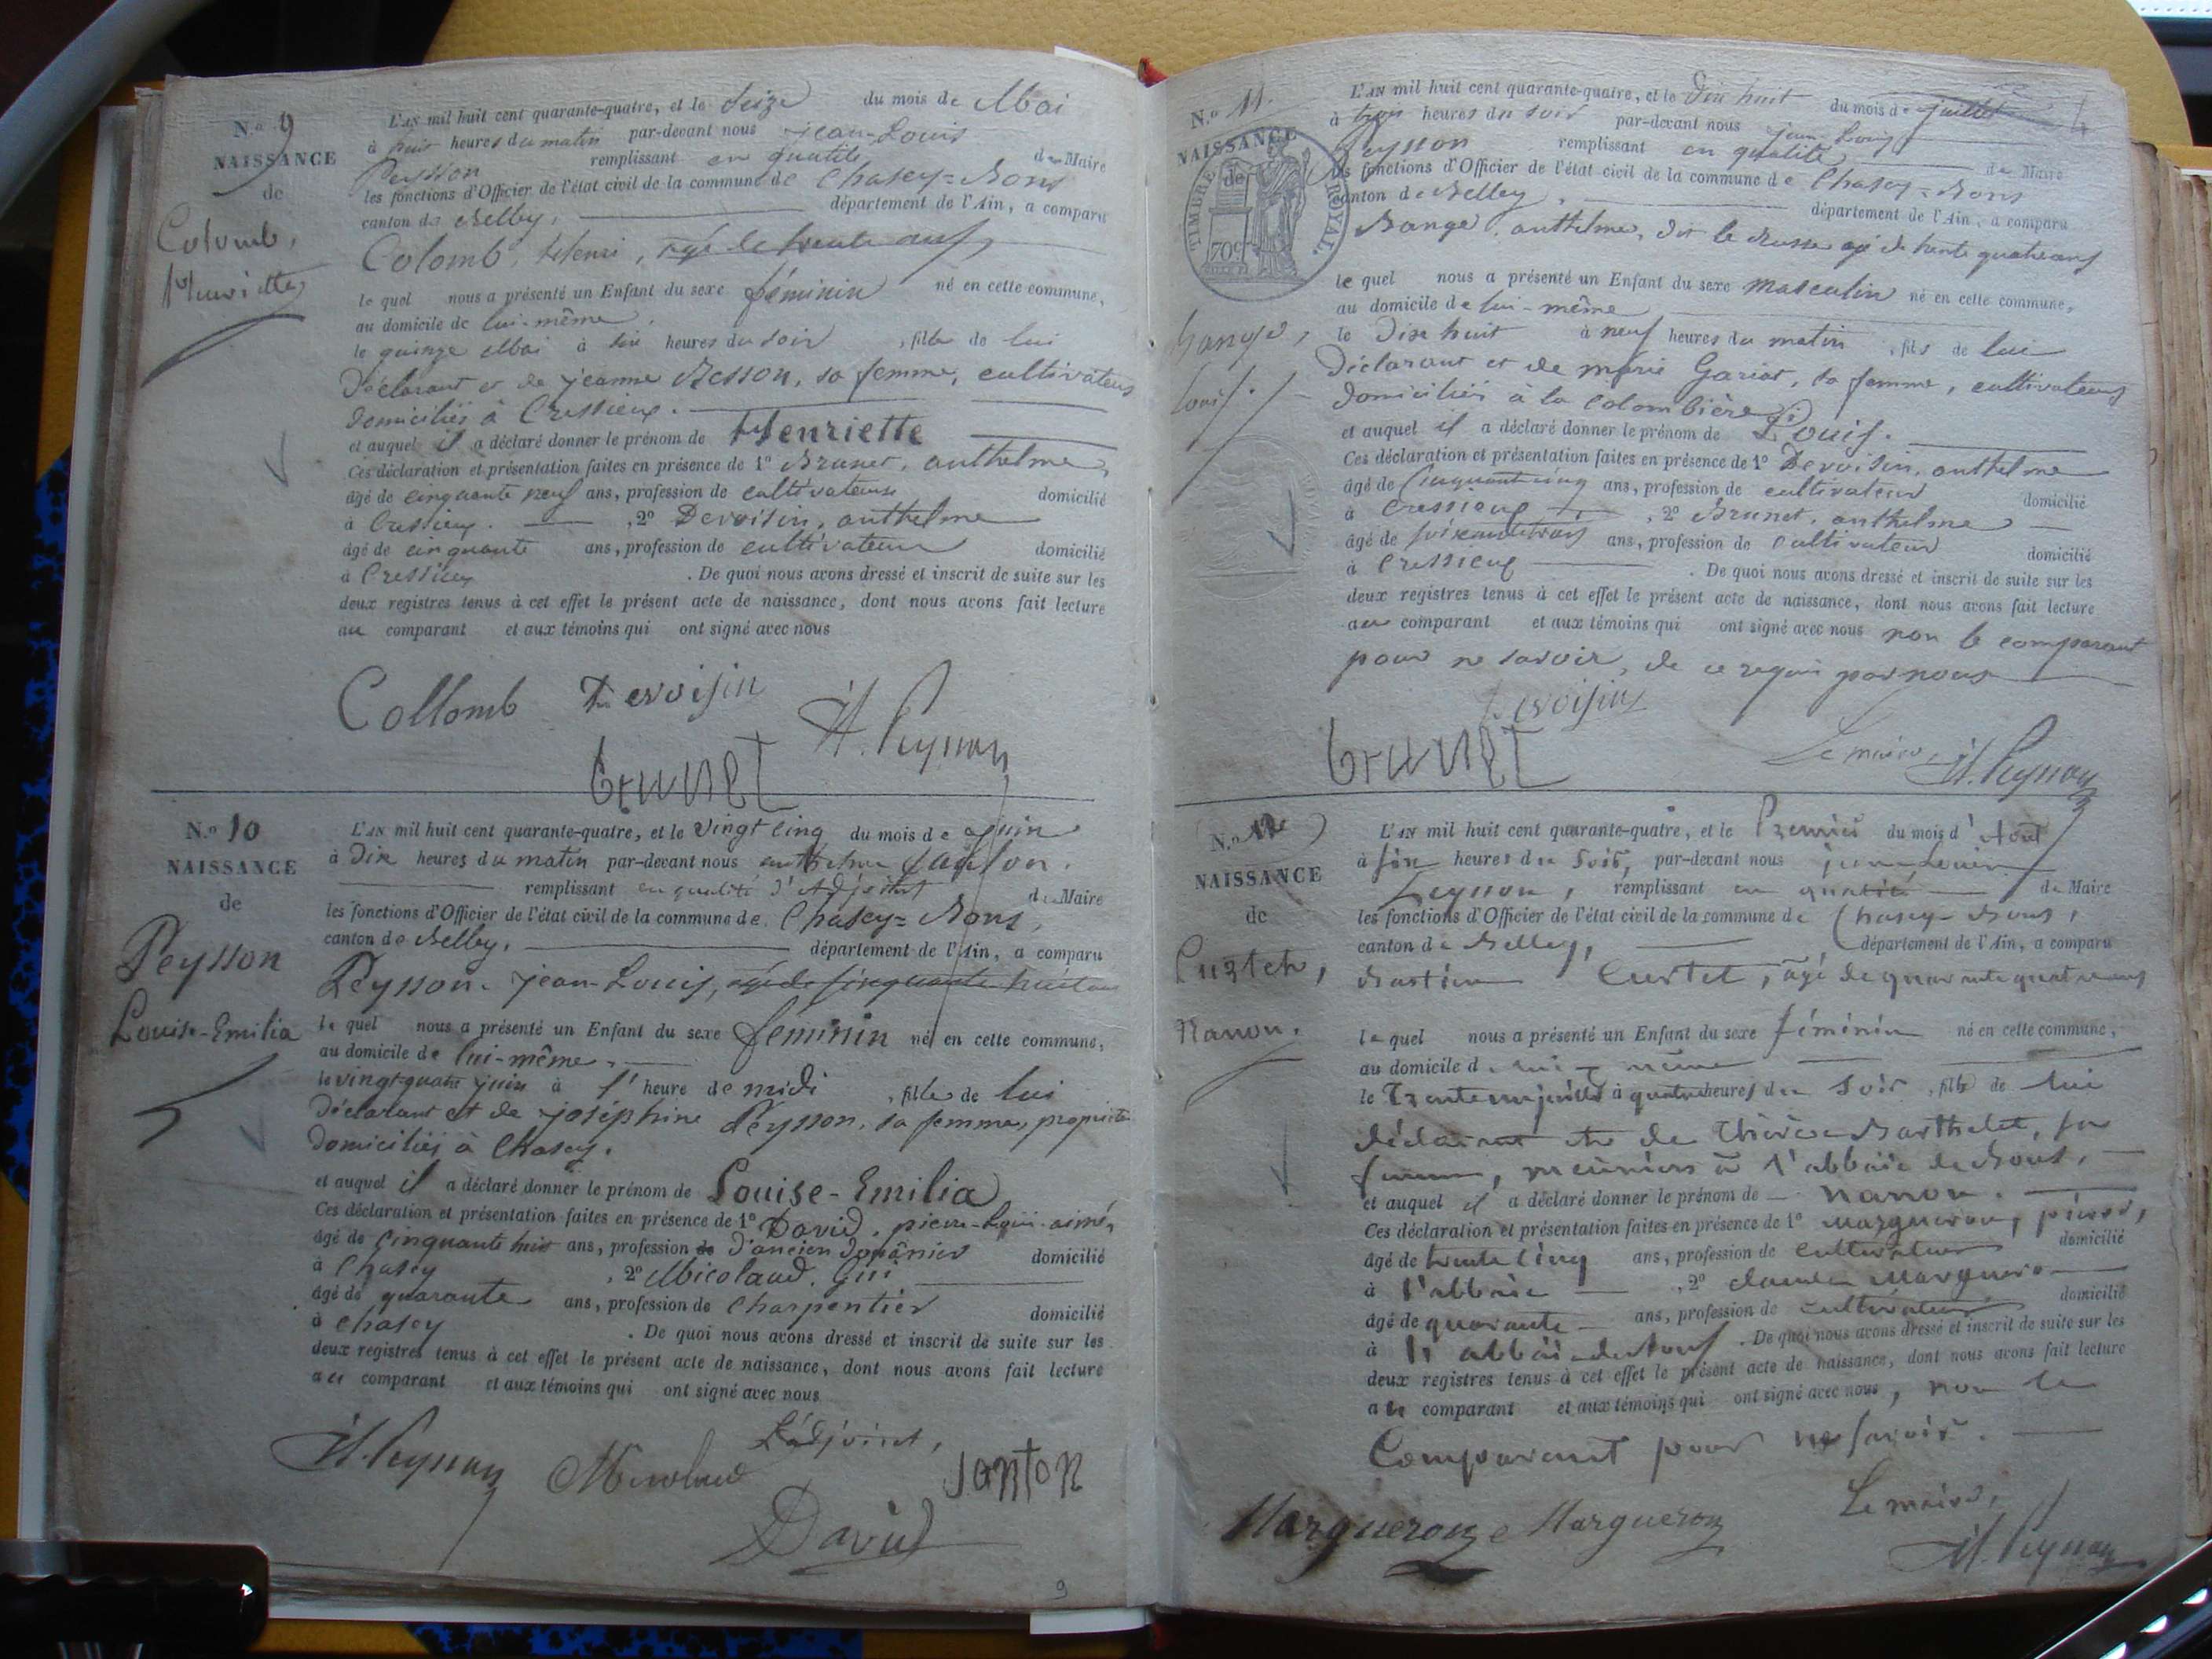 N.º 9
NAISSANCE
de
Colomb,
Henriette
L'AN mil huit cent quarante-quatre, et le seize du mois de Mai
à huit heures du matin par-devant nous jean-Louis
Peysson remplissant en qualité de Maire
les fonctions d'Officier de l'état civil de la commune de Chasey=Bons
canton de Belley, département de l'Ain, a comparu
Colomb, Henri, âgé de trente ans,
le quel nous a présenté un Enfant du sexe féminin né en cette commune,
au domicile de lui-même,
le quinze Mai à six heures du soir, fille de lui
Déclarant et de jeanne Besson, sa femme, cultivateurs
domiciliés à Cressieux.
et auquel il a déclaré donner le prénom de Henriette
Ces déclaration et présentation faites en présence de 1º Brunet, anthelme,
âgé de cinquante neuf ans, profession de cultivateur domicilié
à Cressieux. , 2º Devoisin, anthelme
âgé de cinquante ans, profession de cultivateur domicilié
à Cressieux . De quoi nous avons dressé et inscrit de suite sur les
deux registres tenus à cet effet le présent acte de naissance, dont nous avons fait lecture
au comparant et aux témoins qui ont signé avec nous
Collomb Devoisin
J.L. Peysson
brunet
N.º 10
NAISSANCE
de
Peysson
Louise-Emilia
L'AN mil huit cent quarante-quatre, et le vingt cinq du mois de juin
à Dix heures du matin par-devant nous anthelme janton.
remplissant en qualité d'Adjoint de Maire
les fonctions d'Officier de l'état civil de la commune de Chasey=Bons,
canton de Belley, département de l'Ain, a comparu
Peysson, jean-Louis, âgé de cinquante huit ans
le quel nous a présenté un Enfant du sexe féminin né en cette commune,
au domicile de lui-même,
le vingt-quatre juin à l'heure de midi, fille de lui
Déclarant et de joséphine Peysson, sa femme, propriét.
Domiciliés à Chasey.
et auquel il a déclaré donner le prénom de Louise-Emilia
Ces déclaration et présentation faites en présence de 1º David, pierre-Louis-aimé,
âgé de cinquante huit ans, profession d'ancien Douânier domicilié
à Chasey , 2º Micolaud,
âgé de quarante ans, profession de Charpentier domicilié
à Chasey . De quoi nous avons dressé et inscrit de suite sur les
deux registres tenus à cet effet le présent acte de naissance, dont nous avons fait lecture
au comparant et aux témoins qui ont signé avec nous
L'adjoint,
J.L. Peysson Micolaud janton
David
9
N.º 11.
NAISSANCE
de
TIMBRE ROYAL
70c
bange,
louis.
L'AN mil huit cent quarante-quatre, et le Dix huit du mois de juillet
à trois heures du soir par-devant nous jean-Louis
Peysson remplissant en qualité de Maire
les fonctions d'Officier de l'état civil de la commune de Chasey=Bons
canton de Belley, département de l'Ain, a comparu
Bange, anthelme, dit le Russe âgé de trente quatre ans
le quel nous a présenté un Enfant du sexe masculin né en cette commune,
au domicile de lui-même
le Dix huit à neuf heures du matin, fils de lui
Déclarant et de marie Gariot, sa femme, cultivateurs
Domiciliés à la Colombière
et auquel il a déclaré donner le prénom de Louis.
Ces déclaration et présentation faites en présence de 1º Devoisin, anthelme
âgé de Cinquante cinq ans, profession de cultivateur domicilié
à Cressieux , 2º Brunet, anthelme
âgé de soixante trois ans, profession de Cultivateur domicilié
à Cressieux . De quoi nous avons dressé et inscrit de suite sur les
deux registres tenus à cet effet le présent acte de naissance, dont nous avons fait lecture
au comparant et aux témoins qui ont signé avec nous non le comparant
pour ne savoir, de ce requis par nous
Devoisin
brunet
Le maire, J.L. Peysson
N.º 12
NAISSANCE
de
Curtet,
Nanon.
L'AN mil huit cent quarante-quatre, et le Premier du mois d'Août
à six heures du soir, par-devant nous jean-Louis
Peysson, remplissant en qualité de Maire
les fonctions d'Officier de l'état civil de la commune de Chasey-Bons,
canton de Belley, département de l'Ain, a comparu
Bastien Curtet, âgé de quarante quatre ans
le quel nous a présenté un Enfant du sexe féminin né en cette commune,
au domicile de lui-même
le Trente un juillet à quatre heures du soir, fille de lui
déclarant et de Thérèse Barthelet, sa
femme, meuniers à l'abbaie de Bons,
et auquel il a déclaré donner le prénom de Nanon.
Ces déclaration et présentation faites en présence de 1º Margueron, pierre,
âgé de trente cinq ans, profession de Cultivateur domicilié
à l'abbaie , 2º claude Margueron
âgé de quarante ans, profession de cultivateur domicilié
à l'abbaie de Bons . De quoi nous avons dressé et inscrit de suite sur les
deux registres tenus à cet effet le présent acte de naissance, dont nous avons fait lecture
au comparant et aux témoins qui ont signé avec nous, non le
Comparant pour ne savoir.
Le maire,
Margueron c Margueron
J.L. Peysson